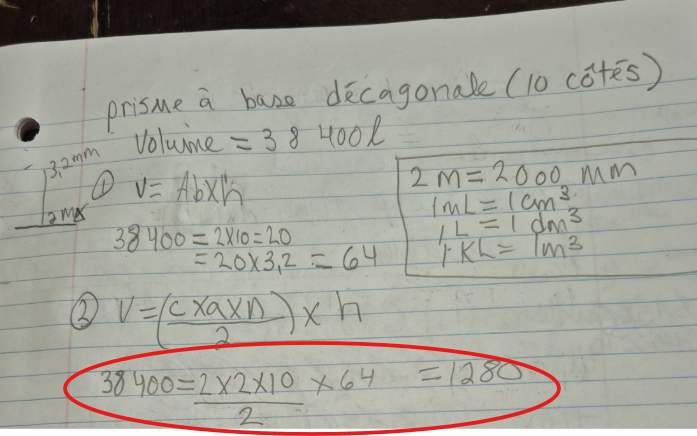 prisme à base décagonale (10 côtés)
Volume = 38 400l
3,2mm
① V= Abxh
2m
38400 = 2x10=20
= 20x3,2 = 64
2 M = 2000 mm
1mL = 1cm³
1L = 1 dm³
1KL = 1m³
② V=(cxaxn/2) x h
38400=2x2x10/2 x 64 =1280